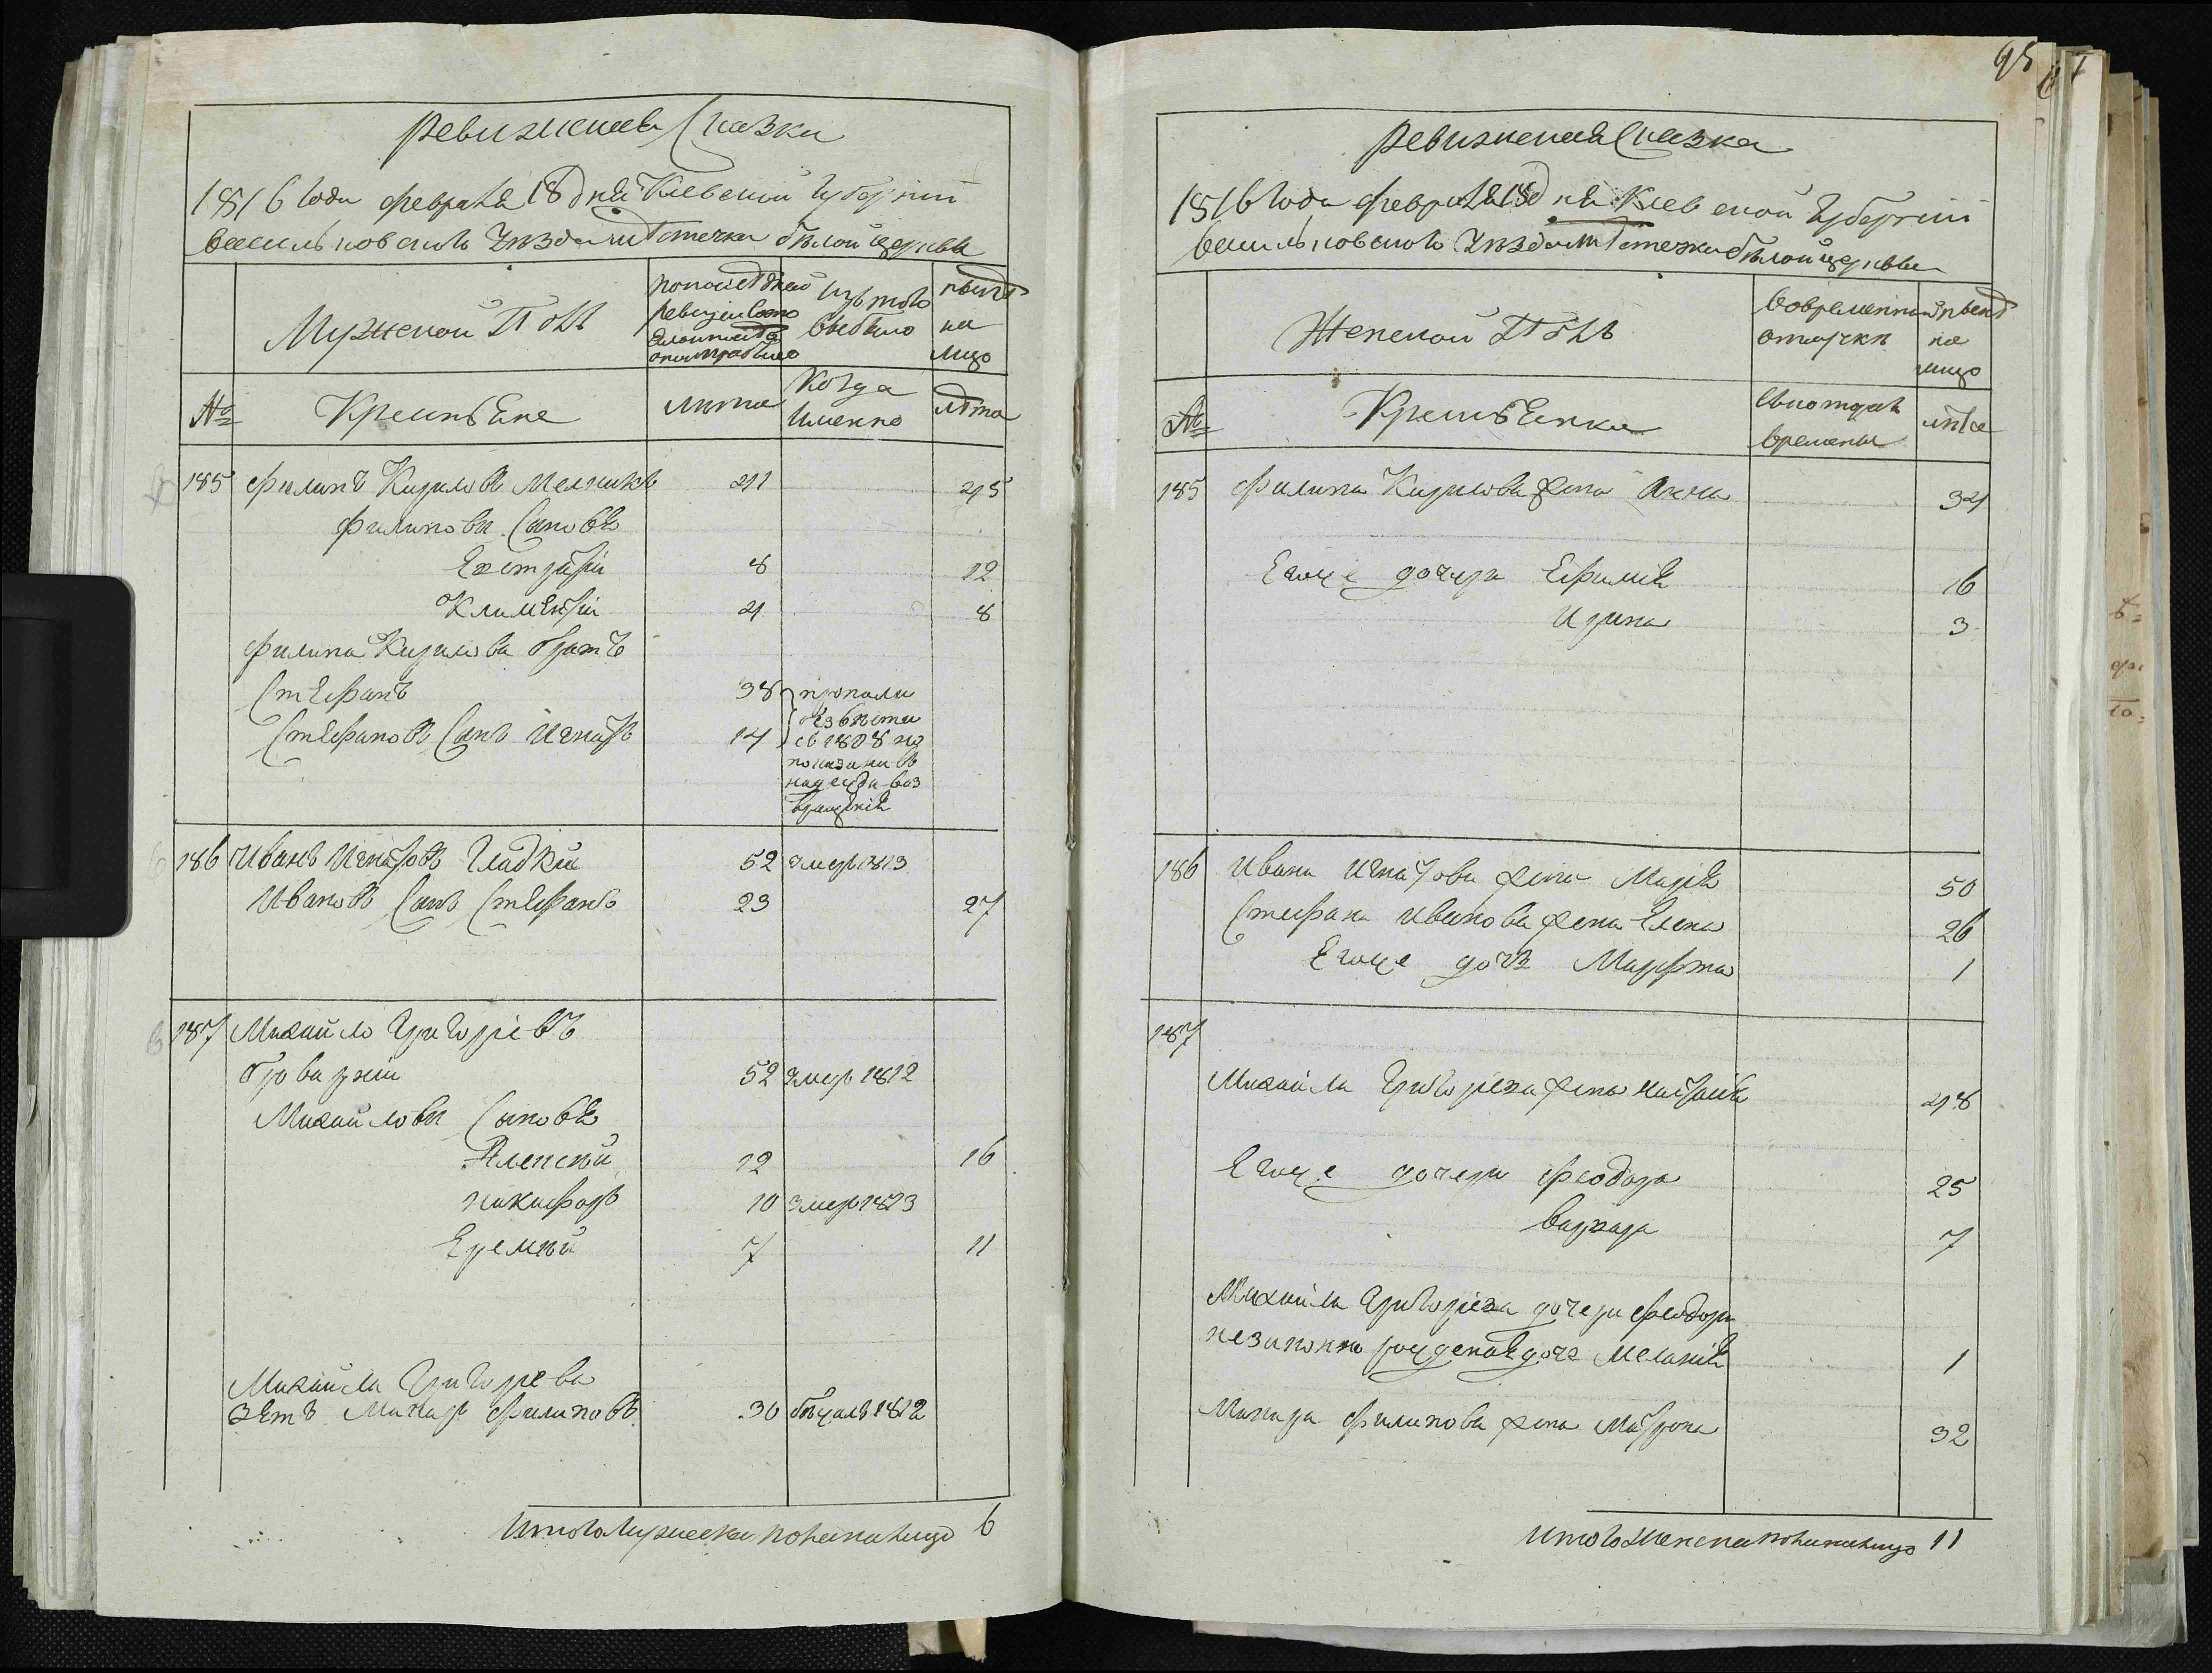 Ревизская Сказка
1816 Года февраля 18 дня Киевской Губернии
Васильковского Уезда местечка белой церкви
Мужеской Полъ
по последней ревизии состояло и после оной прибыло
Изъ того выбыло
ныне на лицо
№
Крестьяне
лета
Когда именно
лета
185 Филипъ Кириловъ Мелникъ 41 45
Филиповы Сыновья
Евстафiй 8 12
Климентiй 4 8
Филипа Кирилова братъ
Стефанъ 38 пропали
Стефановъ Сынъ Игнатъ 14 безвести
въ 1808 по
показани въ
надежда воз
вращенiя
186 Иванъ Игнатовъ Гладкiй 52 умеръ 1813
Ивановъ Сынъ Стефанъ 23 27
187 Михайло Григорiевъ
броварнiй 52 умеръ 1812
Михайловы Сыновья
Алексей 12 16
никифоръ 10 умеръ 1813
Еремей 7 11
Михайла Григорiева
зять Макаръ Филиповъ 30 бежалъ 1812
Итого мужеска пола на лицо 6
95
Ревизская Сказка
1816 Года февраля 18 дня Киевской Губернии
Васильковского Уезда местечка белой церкви
Женской Полъ
Во временной отлучке
ныне на лицо
№
Крестьянки
Съ которого времены
лета
185 Филипа Кирилова жена Анна 34
Егоже дочери Ефимiя 16
Ирина 3
186 Ивана Игнатова жена Марiя 50
Стефана Иванова жена Елена 26
Егоже дочь Марфа 1
187
Михайла Григорiева жена Настасiя 48
Егоже дочери Феодора 25
варвара 7
Михайла Григорiева дочери Феодоры
незаконно рожденная дочь Меланiя 1
Макара Филипова жена Матрона 32
Итого женска пола на лицо 11